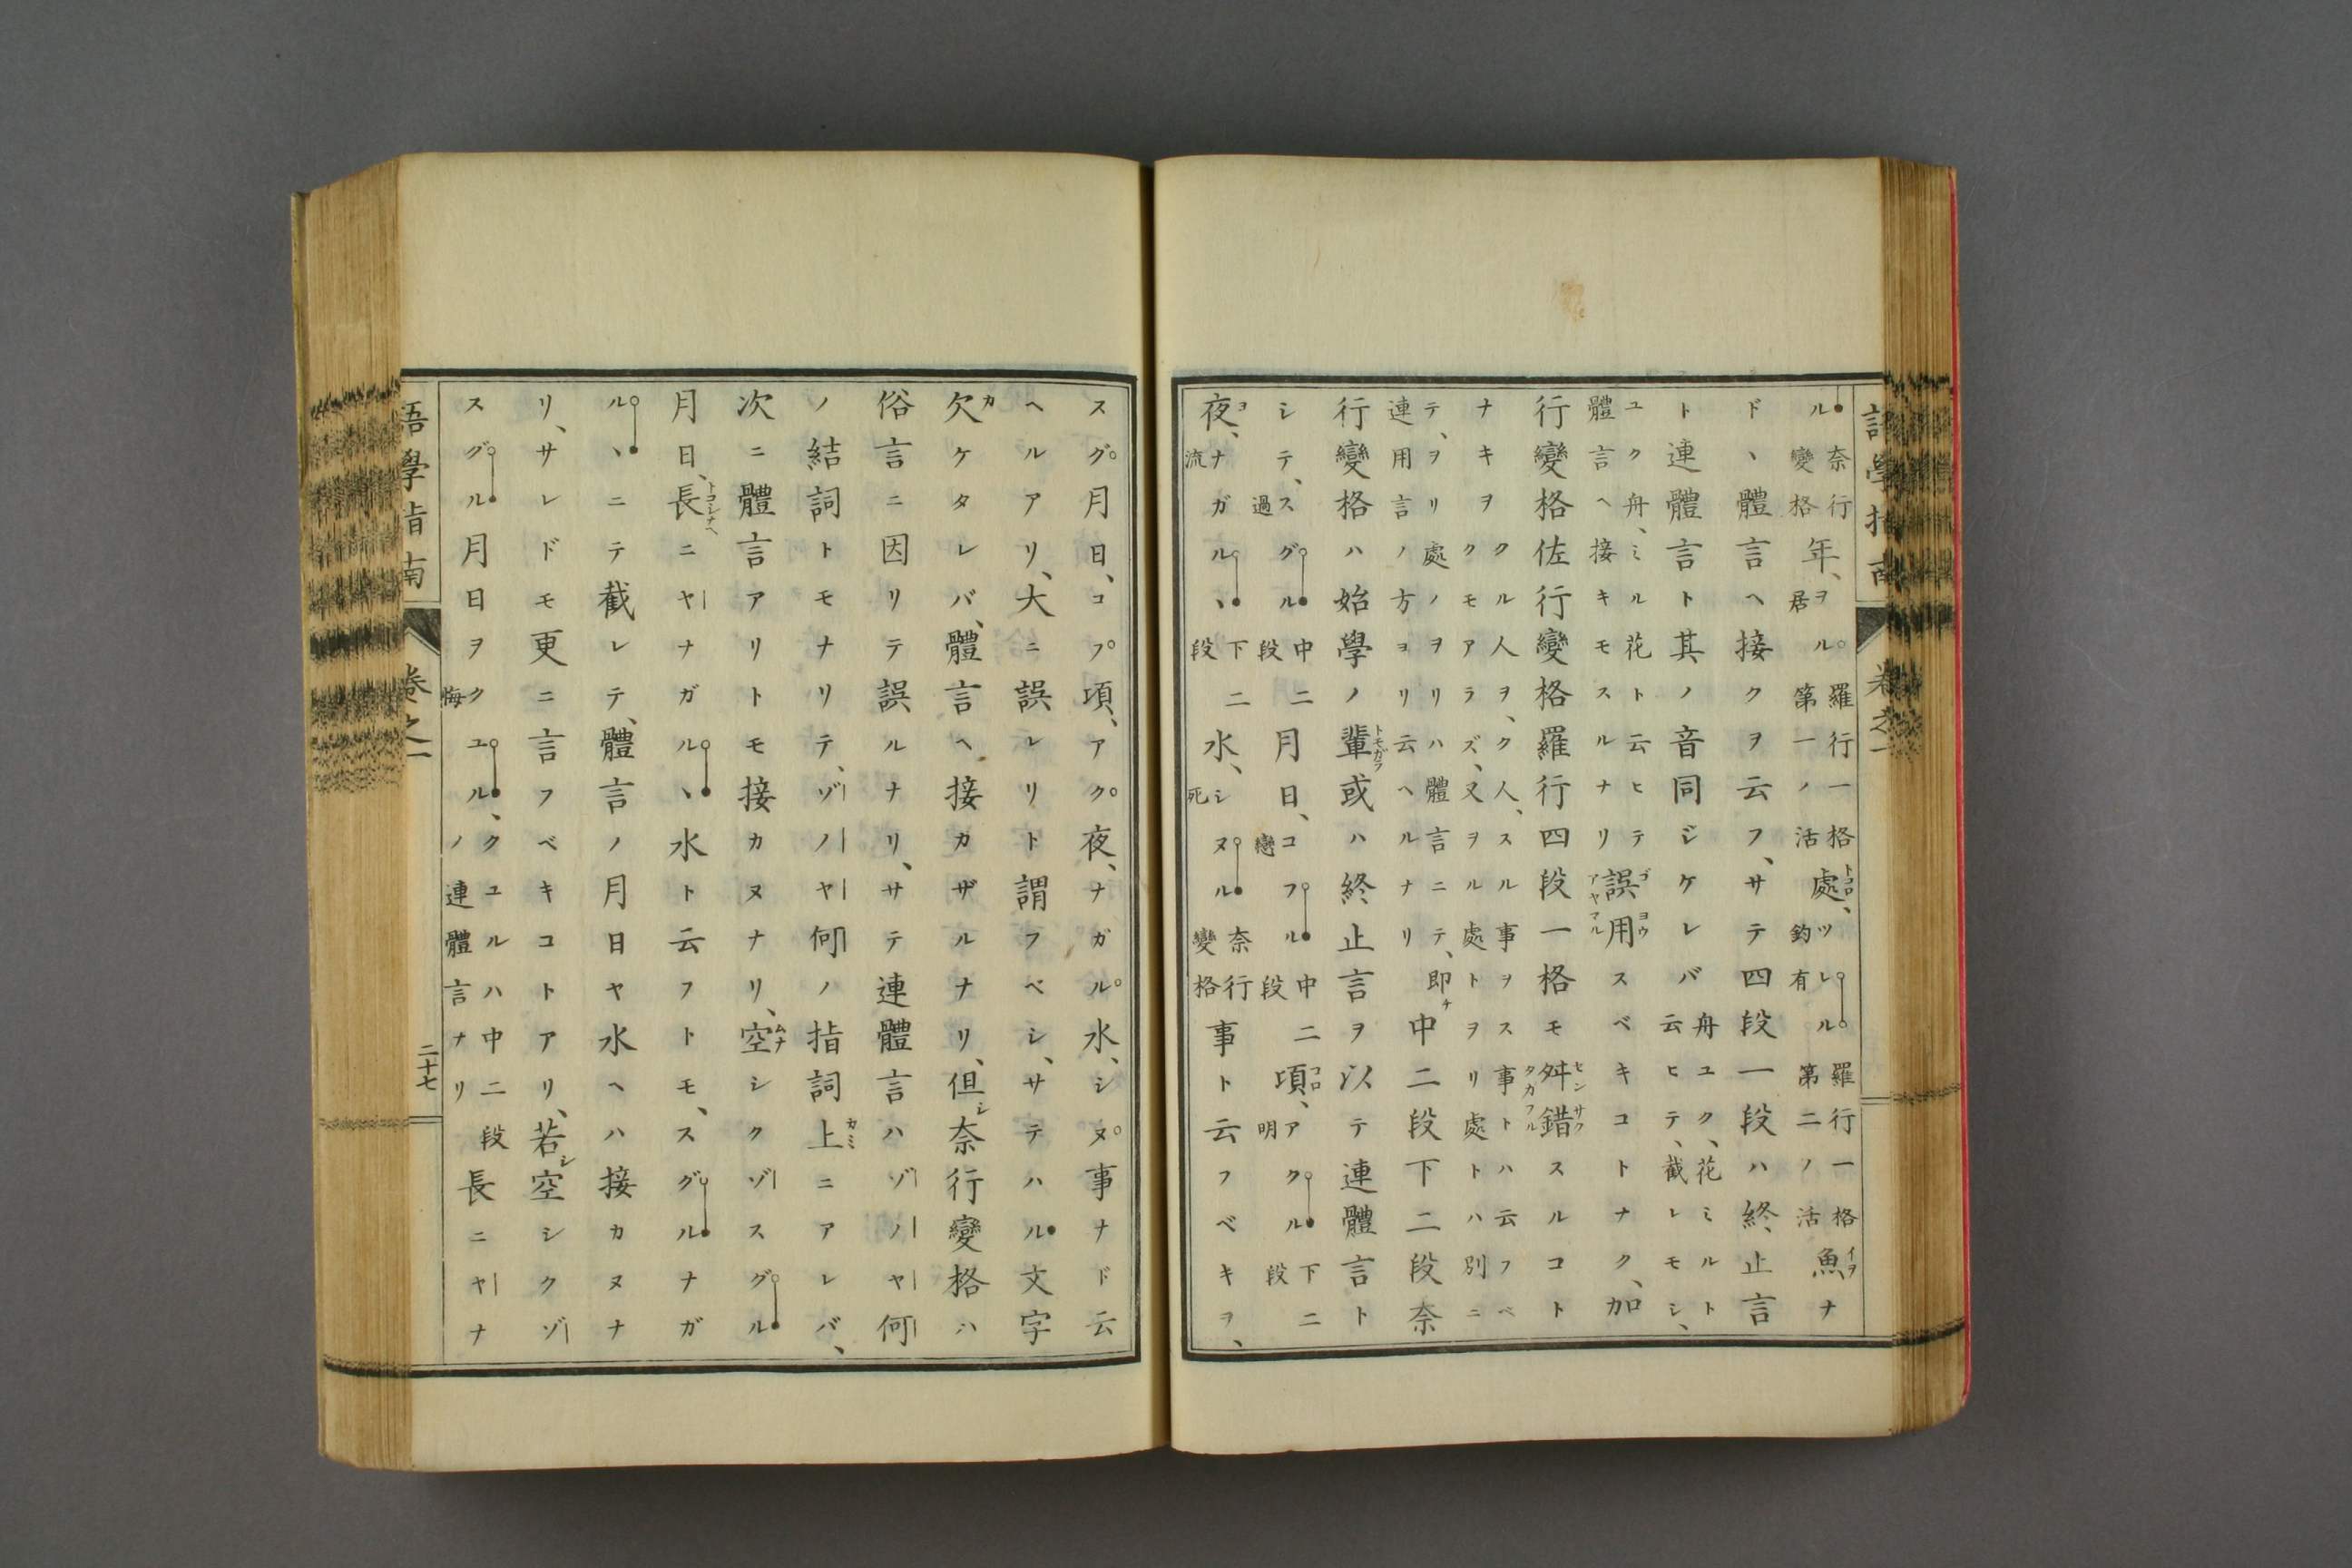 語學指南 卷之一
ル奈行變格年、居ヲル羅行一格第一ノ活處、釣ツレ有ル羅行一格第二ノ活魚ナ
ドヽ體言ヘ接クヲ云フ、サテ四段一段ハ終止言
ト連體言ト其ノ音同ジケレバ舟ユク、花ミルト云ヒテ、截レモシ、
ユク舟、ミル花ト云ヒテ體言ヘ接キモスルナリ誤用スベキコトナク、加
行變格佐行變格羅行四段一格モ舛錯スルコト
ナキヲクル人ヲ、ク人、スル事ヲス事トハ云フベクモアラズ、又ヲル處トヲリ處トハ別ニ
テ、ヲリ處ノヲリハ體言ニテ、即チ連用言ノ方ヨリ云ヘルナリ中二段下二段奈
行變格ハ始學ノ輩或ハ終止言ヲ以テ連體言ト
シテ、過スグル中二段月日、戀コフル中二段項、明アクル下二段
夜、流ナガルヽ下二段水、死シヌル奈行變格事ト云フベキヲ、
スグ月日、コフ項、アク夜、ナガル水、シヌ事ナド云
ヘルアリ、大ニ誤レリト謂フベシ、サテハル文字
欠ケタレバ、體言ヘ接カザルナリ、但シ奈行變格ハ
俗言ニ因リテ誤ルナリ、サテ連體言ハゾノヤ何
ノ結詞トモナリテ、ゾノヤ何ノ指詞上ニアレバ、
次ニ體言アリトモ接カヌナリ、空シクゾスグル
月日、長ニヤナガルヽ水ト云フトモ、スグルナガ
ルヽニテ截レテ、體言ノ月日ヤ水ヘハ接カヌナ
リ、サレドモ更ニ言フベキコトアリ、若シ空シクゾ
スグル月日ヲ悔クユル、クユルハ中二段ノ連體言ナリ長ニヤナ
語學指南 卷之一 二十七